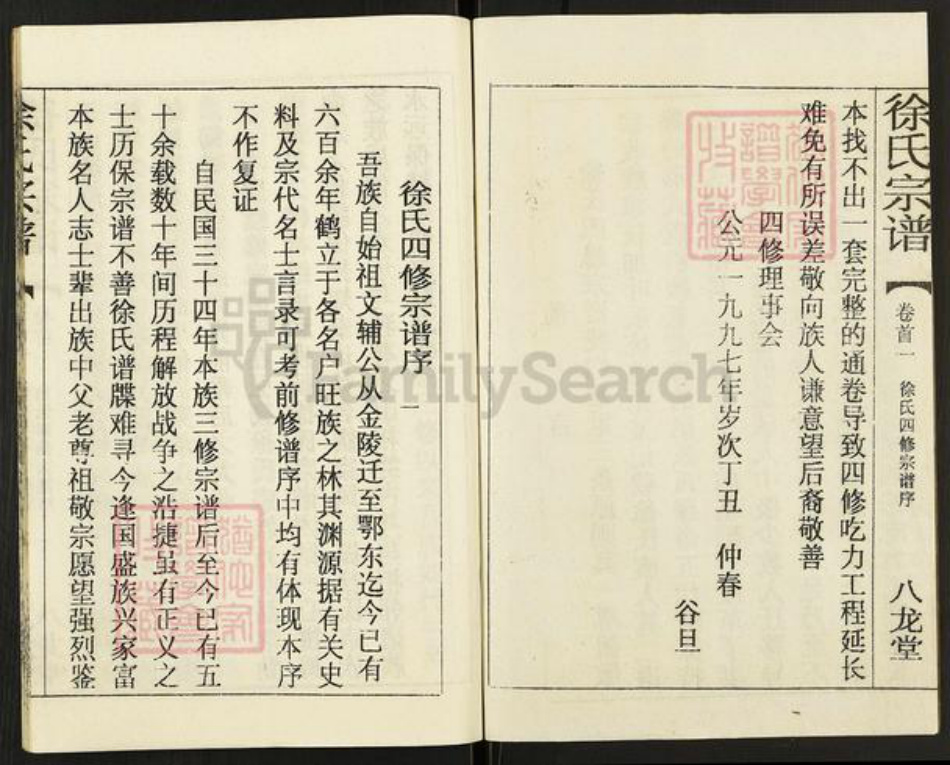 徐氏宗谱
卷首一 徐氏四修宗谱序
八龙堂
本找不出一套完整的通卷导致四修吃力工程延长
难免有所误差敬向族人谦意望后裔敬善
四修理事会
公元一九九七年岁次丁丑 仲春
谷旦
徐氏四修宗谱序一
吾族自始祖文辅公从金陵迁至鄂东迄今已有
六百余年鹤立于各名户旺族之林其渊源据有关史
料及宗代名士言录可考前修谱序中均有体现本序
不作复证
自民国三十四年本族三修宗谱后至今已有五
十余载数十年间历程解放战争之浩捷虽有正义之
士历保宗谱不善徐氏谱牒难寻今逢国盛族兴家富
本族名人志士辈出族中父老尊祖敬宗愿望强烈鉴
FamilySearch